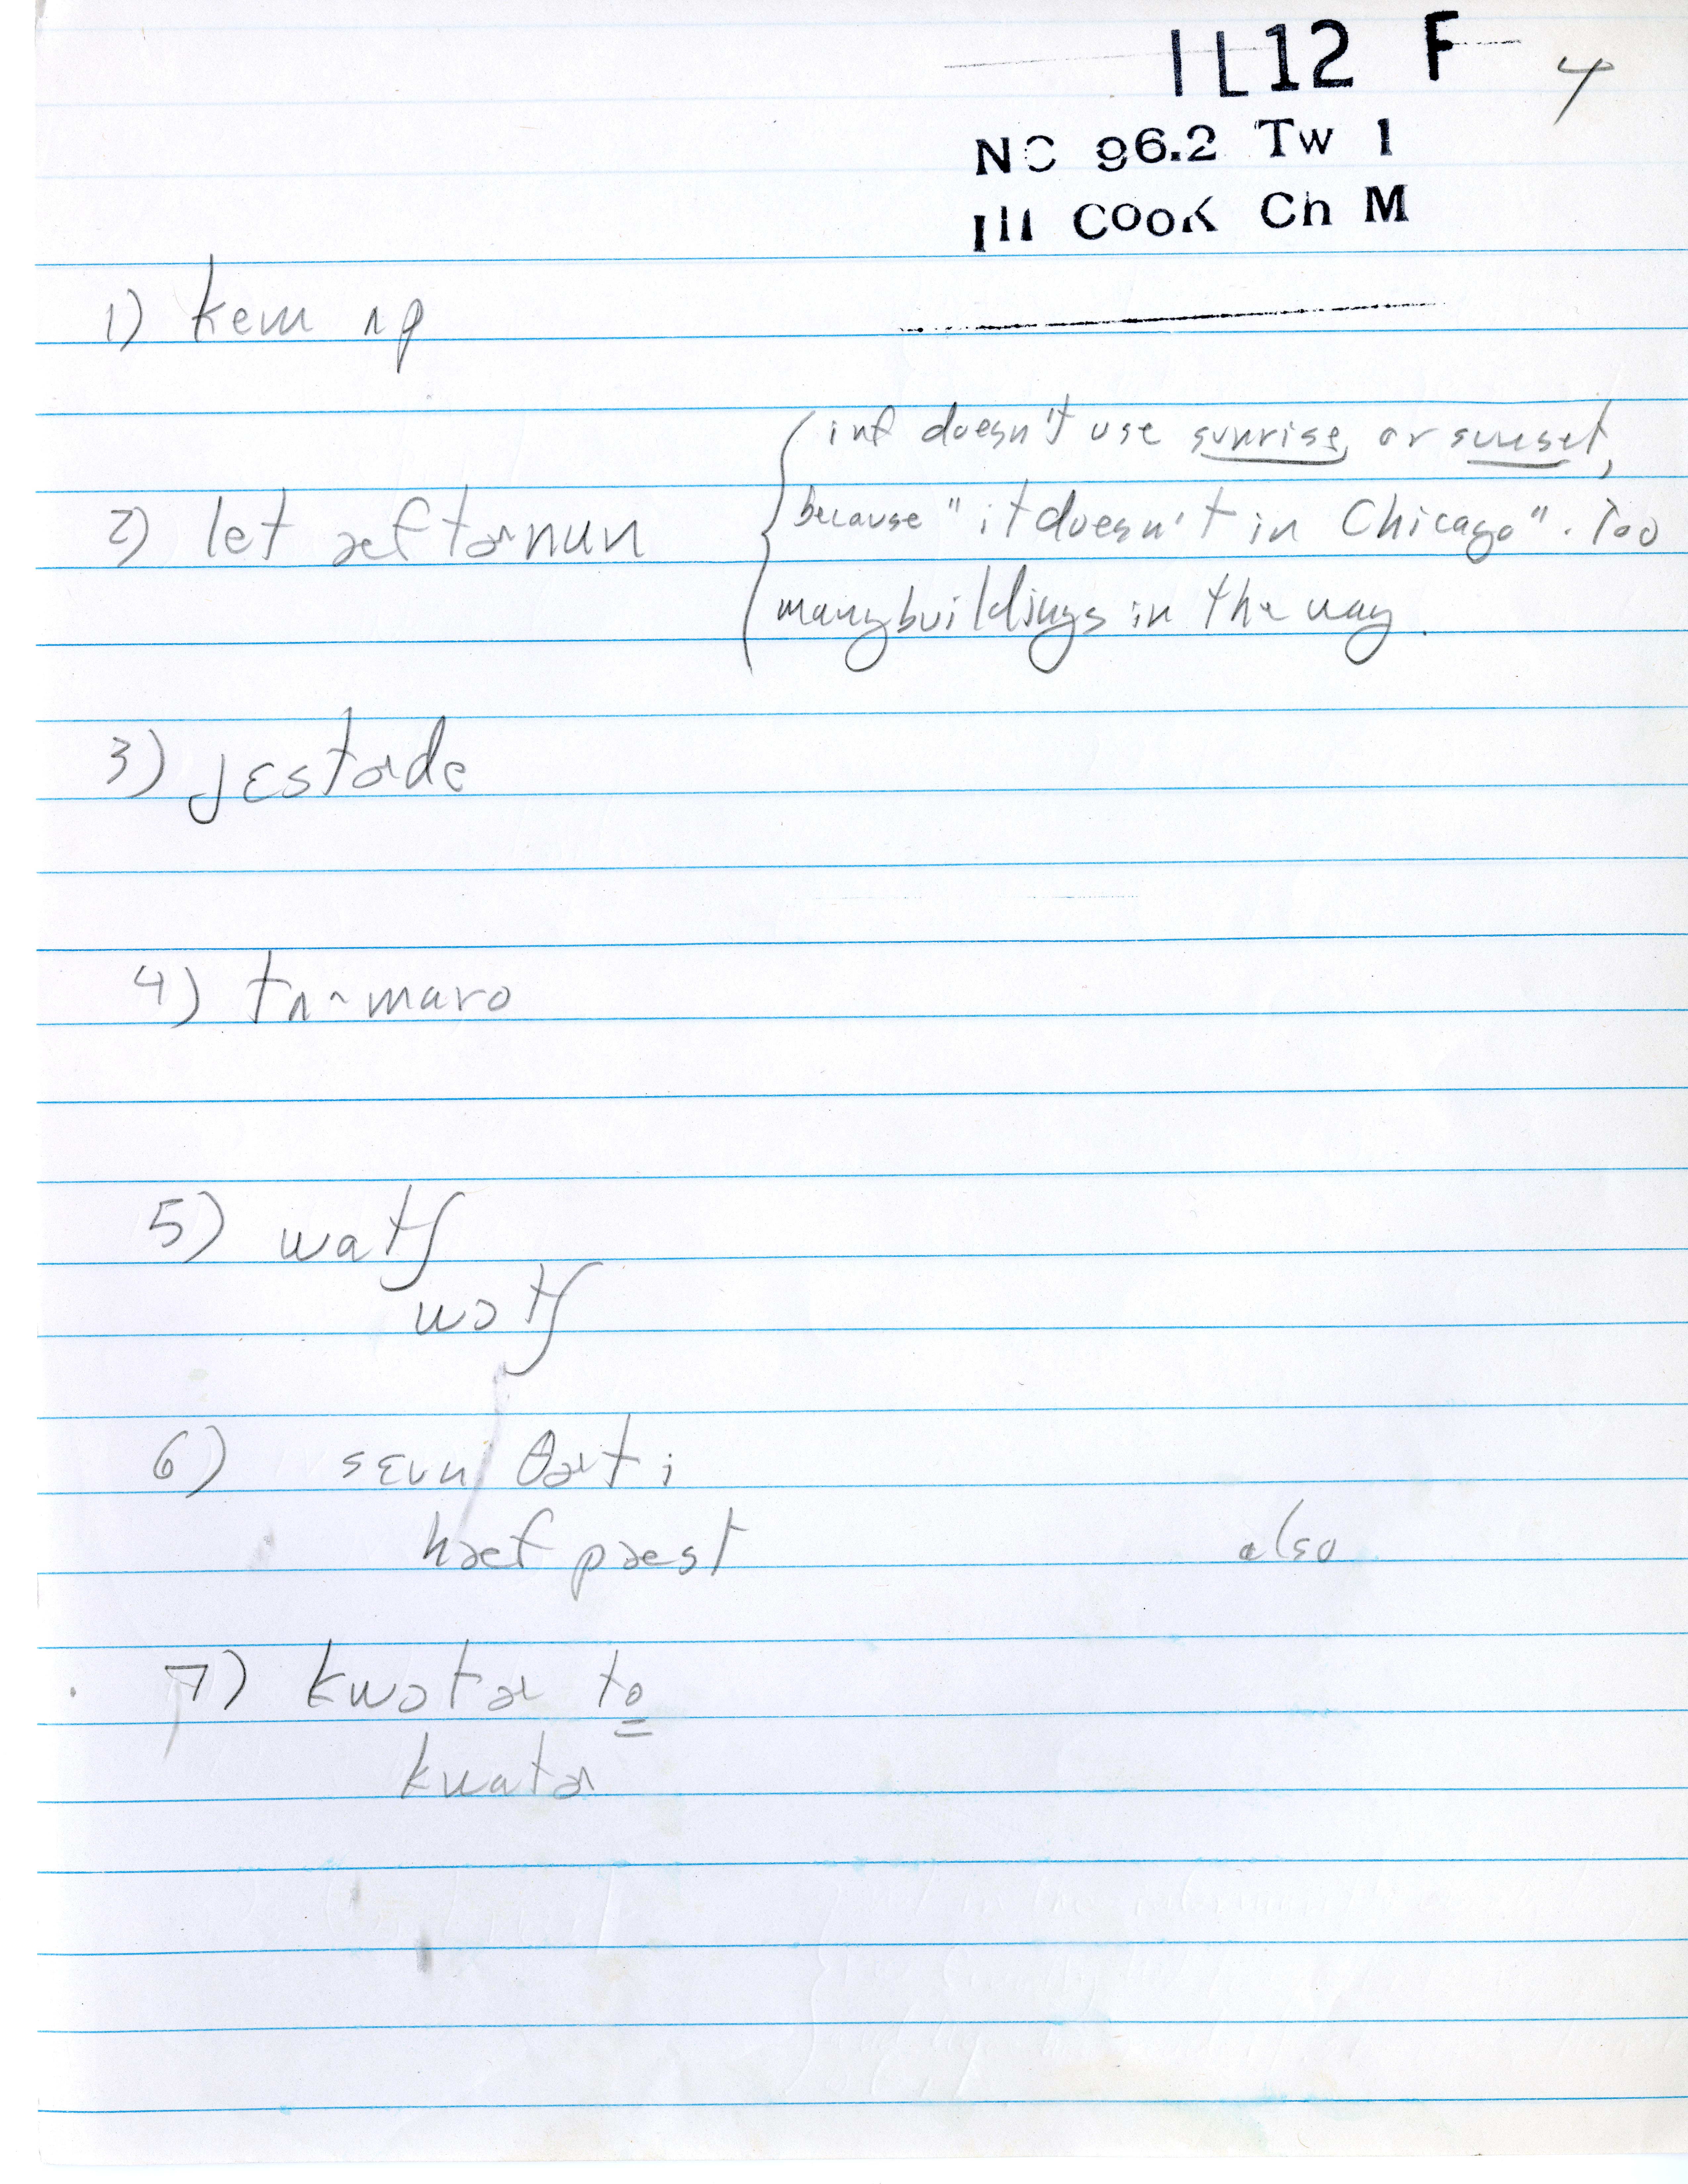 IL12 F 4
NC 96.2 Tw 1
Ill Cook Ch M
1) kem ʌp
inf doesn't use sunrise, or sunset,
2) let æftɚnun
because "it doesn't in Chicago". Too
many buildings in the way.
3) jɛstɚde
4) tʌ~maro
5) watʃ
wɔtʃ
6) sɛvn θɚti
hæf pæst also
7) kwɔtɚ to
kwatɚ